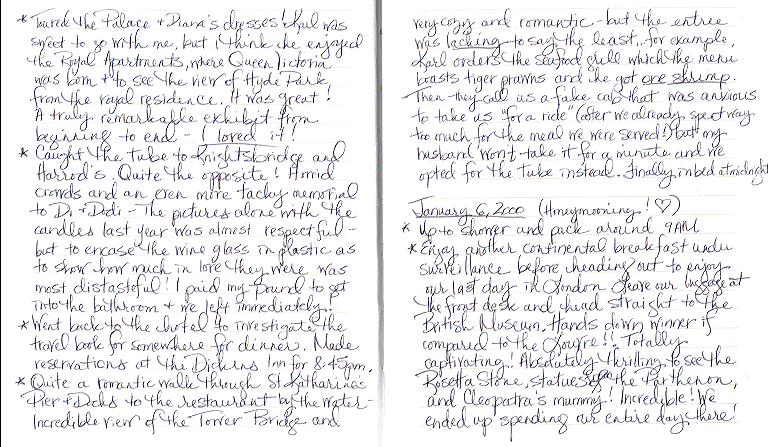 * Toured the Palace + Diana's dresses! Karl was
sweet to go with me, but I think he enjoyed
the Royal Apartments, where Queen Victoria
was born + to see the view of Hyde Park
from the royal residence. It was great!
A truly remarkable exhibit from
beginning to end - I loved it!
* Caught the tube to Knightsbridge and
Harrod's. Quite the opposite! Amid
crowds and an even more tacky memorial
to Di + Dodi - The pictures alone with the
candles last year was almost respectful -
but to encase the wine glass in plastic as
to show how much in love they were was
most distasteful! I paid my pound to get
into the bathroom + we left immediately!
* Went back to the hotel to investigate the
travel book for somewhere for dinner. Made
reservations at the Dickens Inn for 8:45pm.
* Quite a romantic walk through St Katharine's
Pier + Docks to the restaurant by the water -
Incredible view of the Tower Bridge and
very cozy and romantic - but the entree
was lacking to say the least... for example,
Karl orders the seafood grill which the menu
boasts tiger prawns and he got one shrimp.
Then they call us a fake cab that was anxious
to take us "for a ride" (after we already spent way
too much for the meal we were served!) but my
husband won't take it for a minute and we
opted for the tube instead. Finally in bed at midnight
January 6, 2000 (Honeymooning! ♡)
* Up to shower and pack around 9AM
* Enjoy another continental breakfast under
surveillance before heading out to enjoy
our last day in London. Leave our luggage at
the front desk and head straight to the
British Museum. Hands down winner if
compared to the Louvre!! Totally
captivating! Absolutely thrilling to see the
Rosetta Stone, statues from the Parthenon,
and Cleopatra's mummy! Incredible! We
ended up spending our entire day there!